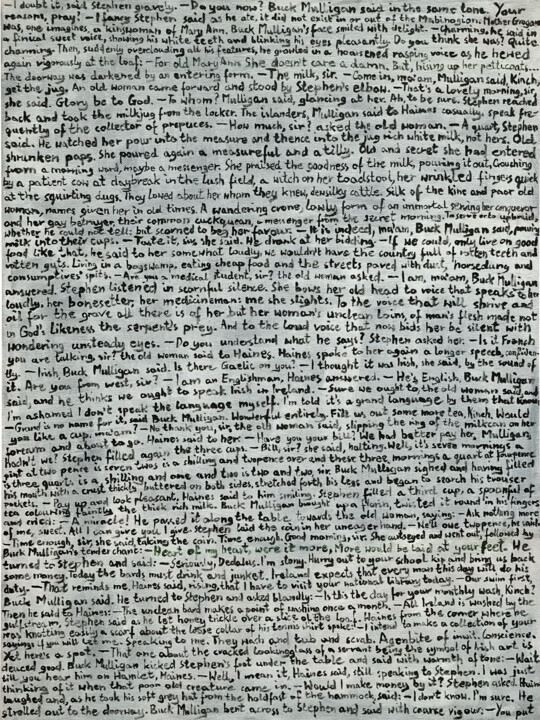 -I doubt it, said Stephen gravely. -Do you now? Buck Mulligan said in the same tone. Your
reasons, pray? -I fancy, Stephen said as he ate, it did not exist in or out of the Mabinogion. Mother Grogan
was, one imagines, a kinswoman of Mary Ann. Buck Mulligan's face smiled with delight. -Charming, he said in
a finical sweet voice, showing his white teeth and blinking his eyes pleasantly. Do you think she was? Quite
charming. Then, suddenly overclouding all his features, he growled in a hoarsened rasping voice as he hewed
again vigorously at the loaf: -For old Mary Ann She doesn't care a damn. But, hising up her petticoats,
The doorway was darkened by an entering form. -The milk, sir. -Come in, ma'am, Mulligan said, Kinch,
get the jug. An old woman came forward and stood by Stephen's elbow. -That's a lovely morning, sir,
she said. Glory be to God. -To whom? Mulligan said, glancing at her. Ah, to be sure. Stephen reached
back and took the milkjug from the locker. The islanders, Mulligan said to Haines casually, speak fre-
quently of the collector of prepuces. -How much, sir? asked the old woman. -A quart, Stephen
said. He watched her pour into the measure and thence into the jug rich white milk, not hers. Old
shrunken paps. She poured again a measureful and a tilly. Old and secret she had entered
from a morning word, maybe a messenger. She praised the goodness of the milk, pouring it out, Crouching
by a patient cow at daybreak in the lush field, a witch on her toadstool, her wrinkled fingers quick
at the squirting dugs. They lowed about her whom they knew, dewsilky cattle. Silk of the kine and poor old
woman, names given her in old times. A wandering crone, lowly form of an immortal serving her conqueror
and her gay betrayer, their common cuckquean, a messenger from the secret morning. To serve or to upbraid,
whether he could not tell: but scorned to beg her favour. -It is indeed, ma'am, Buck Mulligan said, pouring
milk into their cups. -Taste it, sir, she said. He drank at her bidding. -If we could, only live on good
food like that, he said to her somewhat loudly, we wouldn't have the country full of rotten teeth and
rotten guts. Living in a bogswamp, eating cheap food and the streets paved with dust, horsedung and
consumptives' spits. -Are you a medical student, sir? the old woman asked. -I am, ma'am, Buck Mulligan
answered. Stephen listened in scornful silence. She bows her old head to voice that speaks to her
loudly, her bonesetter, her medicineman: me she slights. To the voice that will shrive and
oil for the grave all there is of her but her woman's unclean loins, of man's flesh made not
in God's likeness the serpent's prey. And to the loud voice that now bids her be silent with
wondering unsteady eyes. -Do you understand what he says? Stephen asked her. -Is it French
you are talking, sir? the old woman said to Haines. Haines spoke to her again a longer speech, confiden-
tly. -Irish, Buck Mulligan said. Is there Gaelic on you? -I thought it was Irish, she said, by the sound of
it. Are you from west, sir? -I am an Englishman, Haines answered. -He's English, Buck Mulligan
said, and he thinks we ought to speak Irish in Ireland. -Sure we ought to, the old woman said, and
I'm ashamed I don't speak the language myself. I'm told it's a grand language by them that knows.
-Grand is no name for it, said Buck Mulligan. Wonderful entirely. Fill us out some more tea, Kinch. Would
you like a cup, ma'am? -No thank you, sir, the old woman said, slipping the ring of the milkcan on her
forearm and about to go. Haines said to her: -Have you your bill? We had better pay her, Mulligan,
hadn't we? Stephen filled again the three cups. -Bill, sir? she said, halting. Well, it's seven mornings a
pint at two pence is seven twos is a shilling and twopence over and these three mornings a quart at fourpence
is three quarts is a shilling and one and two is two and two, sir. Buck Mulligan sighed and having filled
his mouth with a crust thickly buttered on both sides, stretched forth his legs and began to search his trouser
pockets. -Pay up and look pleasant, Haines said to him smiling. Stephen filled a third cup, a spoonful of
tea colouring faintly the thick rich milk. Buck Mulligan bought up a florin, twisted it round in his fingers
and cried: -A miracle! He passed it along the table towards the old woman, saying: -Ask nothing more
of me, sweet. All I can give you I give. Stephen laid the coin in her uneager hand. -We'll owe twopence, he said.
-Time enough, sir, she said, taking the coin. Time enough. Good morning, sir. She curtseyed and went out, followed by
Buck Mulligan's tender chant: -Heart of my heart, were it more, More would be laid at your feet. He
turned to Stephen and said: -Seriously, Dedalus. I'm stony. Hurry out to your school kip and bring us back
some money. Today the bards must drink and junket. Ireland expects that every man this day will do his
duty. -That reminds me, Haines said, rising, that I have to visit your national library today. -Our swim first,
Buck Mulligan said. He turned to Stephen and asked blandly: -Is this the day for your monthly wash, Kinch?
Then he said to Haines: -The unclean bard makes a point of washing once a month. -All Ireland is washed by the
gulfstream, Stephen said as he let honey trickle over a slice of the loaf. Haines from the corner where he
was knotting easily a scarf about the loose collar of his tennis shirt spoke: -I intend to make a collection of your
sayings if you will let me. Speaking to me. They wash and tub and scrub. Agenbite of inwit. Conscience.
Yet here's a spot. -That one about the cracked lookingglass of a servant being the symbol of Irish art is
deuced good. Buck Mulligan kicked Stephen's foot under the table and said with warmth of tone: -Wait
till you hear him on Hamlet, Haines. -Well, I mean it, Haines said, still speaking to Stephen. I was just
thinking of it when that poor old creature came in. -Would I make money by it? Stephen asked. Haines
laughed and, as he took his soft grey hat from the holdfast of the hammock, said: -I don't know, I'm sure. He
strolled out to the doorway. Buck Mulligan bent across to Stephen and said with coarse vigour: -You put